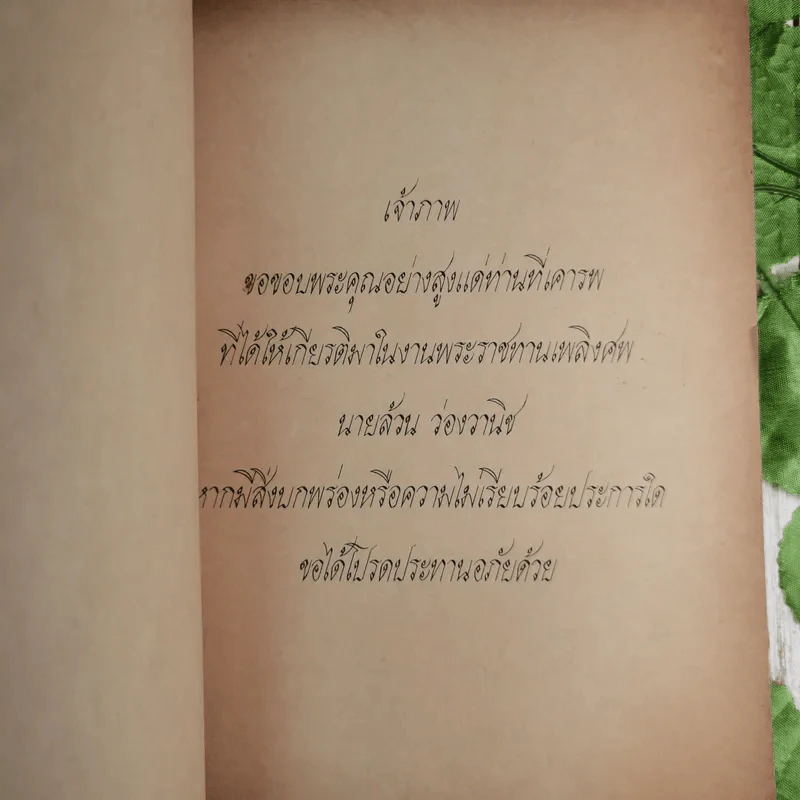 เจ้าภาพ
ขอขอบพระคุณอย่างสูงแด่ท่านที่เคารพ
ที่ได้ให้เกียรติมาในงานพระราชทานเพลิงศพ
นายล้วน ว่องวานิช
หากมีสิ่งบกพร่องหรือความไม่เรียบร้อยประการใด
ขอได้โปรดประทานอภัยด้วย